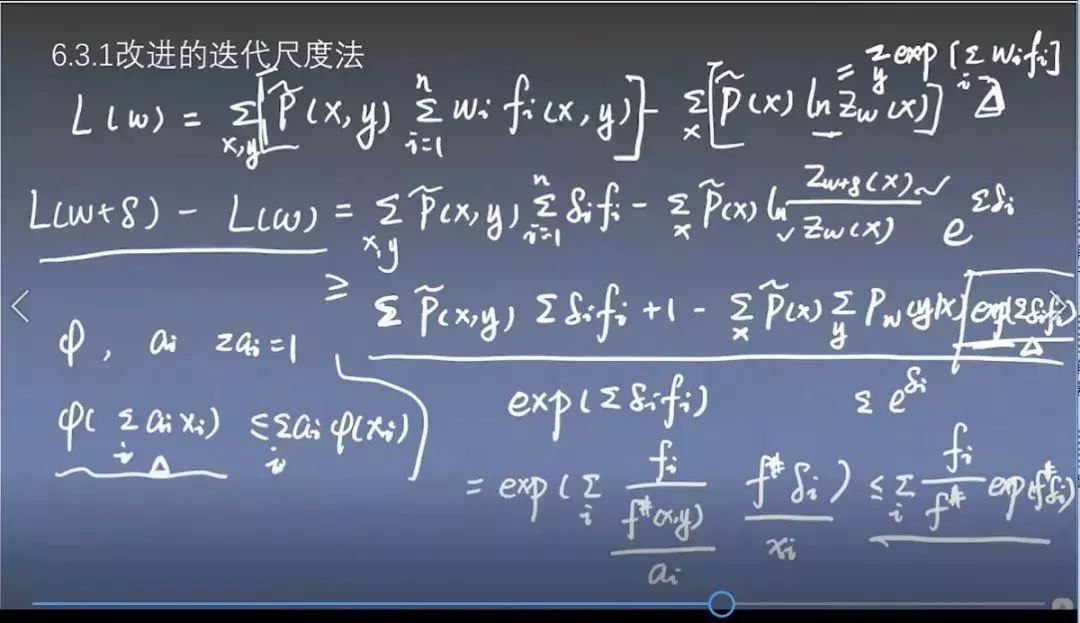 6.3.1改进的迭代尺度法
= Σ_y exp[Σ_i w_i f_i]
L(w) = Σ_{x,y} [P̃(x,y) Σ_{i=1}^n w_i f_i(x,y)] - Σ_x [P̃(x) ln Z_w(x)] Δ
L(w+δ) - L(w) = Σ_{x,y} P̃(x,y) Σ_{i=1}^n δ_i f_i - Σ_x P̃(x) ln Z_{w+δ}(x) / Z_w(x) e^{Σδ_i}
≥ Σ P̃(x,y) Σ δ_i f_i + 1 - Σ_x P̃(x) Σ_y P_w(y|x) exp(Σδ_i f_i) Δ
φ, a_i Σa_i = 1
exp(Σ δ_i f_i) Σ e^{δ_i}
φ(Σ_i a_i x_i) ≤ Σ_i a_i φ(x_i) Δ
= exp(Σ_i f_i / f^#(x,y) f^# δ_i) ≤ Σ_i f_i / f^# exp(f^# δ_i)
a_i x_i